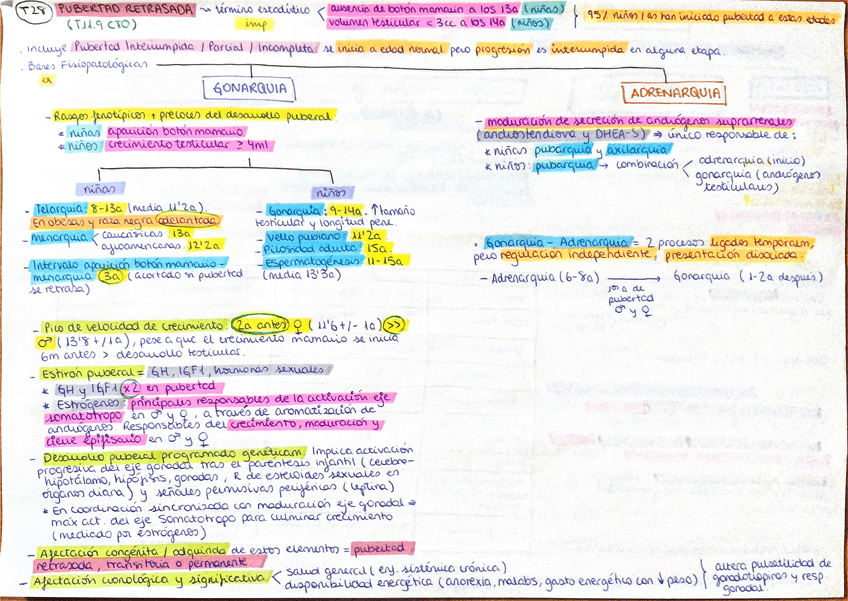 T28 PUBERTAD RETRASADA → término estadístico < ausencia de botón mamario a los 13a (niñas) } 95% niños/as han iniciado pubertad a estas edades
(T.11.9 CTO) imp volumen testicular < 3cc a los 14a (niños)
· Incluye Pubertad Interrumpida / Parcial / Incompleta: se inicia a edad normal pero progresión es interrumpida en alguna etapa.
· Bases Fisiopatológicas
GONARQUIA
- Rasgos fenotípicos + precoces del desarrollo puberal
* niñas: aparición botón mamario
* niños: crecimiento testicular ≥ 4ml
niñas
- Telarquia: 8-13a (media 11'2a).
En obesas y raza negra adelantada
- menarquia < caucásicas 13a
afroamericanas. 12'2a
- Intervalo aparición botón mamario -
menarquia: 3a (acortado si pubertad
se retrasa)
niños
- Gonarquia: 9-14a. ↑tamaño
testicular y longitud pene.
- Vello pubiano: 11'2a
- Pilosidad adulta: 15a.
- Espermatogénesis: 11-15a
(media 13'3a)
- Pico de velocidad de crecimiento: 2a antes ♀ (11'6+/- 1a) >>
♂ (13'8+/1a), pese a que el crecimiento mamario se inicia
6m antes > desarrollo testicular.
- Estirón puberal = GH, IGF1, hormonas sexuales.
* GH y IGF1 x2 en pubertad
* Estrógenos: principales responsables de la activación eje
somatotropo en ♂ y ♀, a través de aromatización de
andrógenos. Responsables del crecimiento, maduración y
cierre epifisario en ♂ y ♀
- Desarrollo puberal programado genéticam. Implica activación
progresiva del eje gonadal tras el paréntesis infantil (cerebro-
hipotálamo, hipófisis, gonadas, R de esteroides sexuales en
órganos diana) y señales permisivas periféricas (leptina)
* En coordinación sincronizada con maduración eje gonadal ⇒
máx act. del eje Somatotropo para culminar crecimiento
(mediado por estrógenos)
- Afectación congénita / adquirida de estos elementos = pubertad
retrasada, transitoria o permanente.
- Afectación cronológica y significativa < salud general (enf. sistémica crónica)
disponibilidad energética (anorexia, malabs, gasto energético con ↓ peso) } altera pulsatilidad de
gonadotropinas y resp.
gonadal
ADRENARQUIA
- maduración de secreción de andrógenos suprarrenales
(androstendiona y DHEA-S) ⇒ único responsable de:
* niñas: pubarquia y axilarquia
* niños: pubarquia → combinación < adrenarquia (inicio)
gonarquia (andrógenos
testiculares)
· Gonarquia - Adrenarquia = 2 procesos ligados temporalm,
pero regulación independiente, presentación disociada.
- Adrenarquia (6-8a) → Gonarquia (1-2a después)
pubertad
♂ y ♀